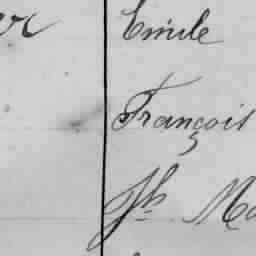 Emile
François
Jh Ma